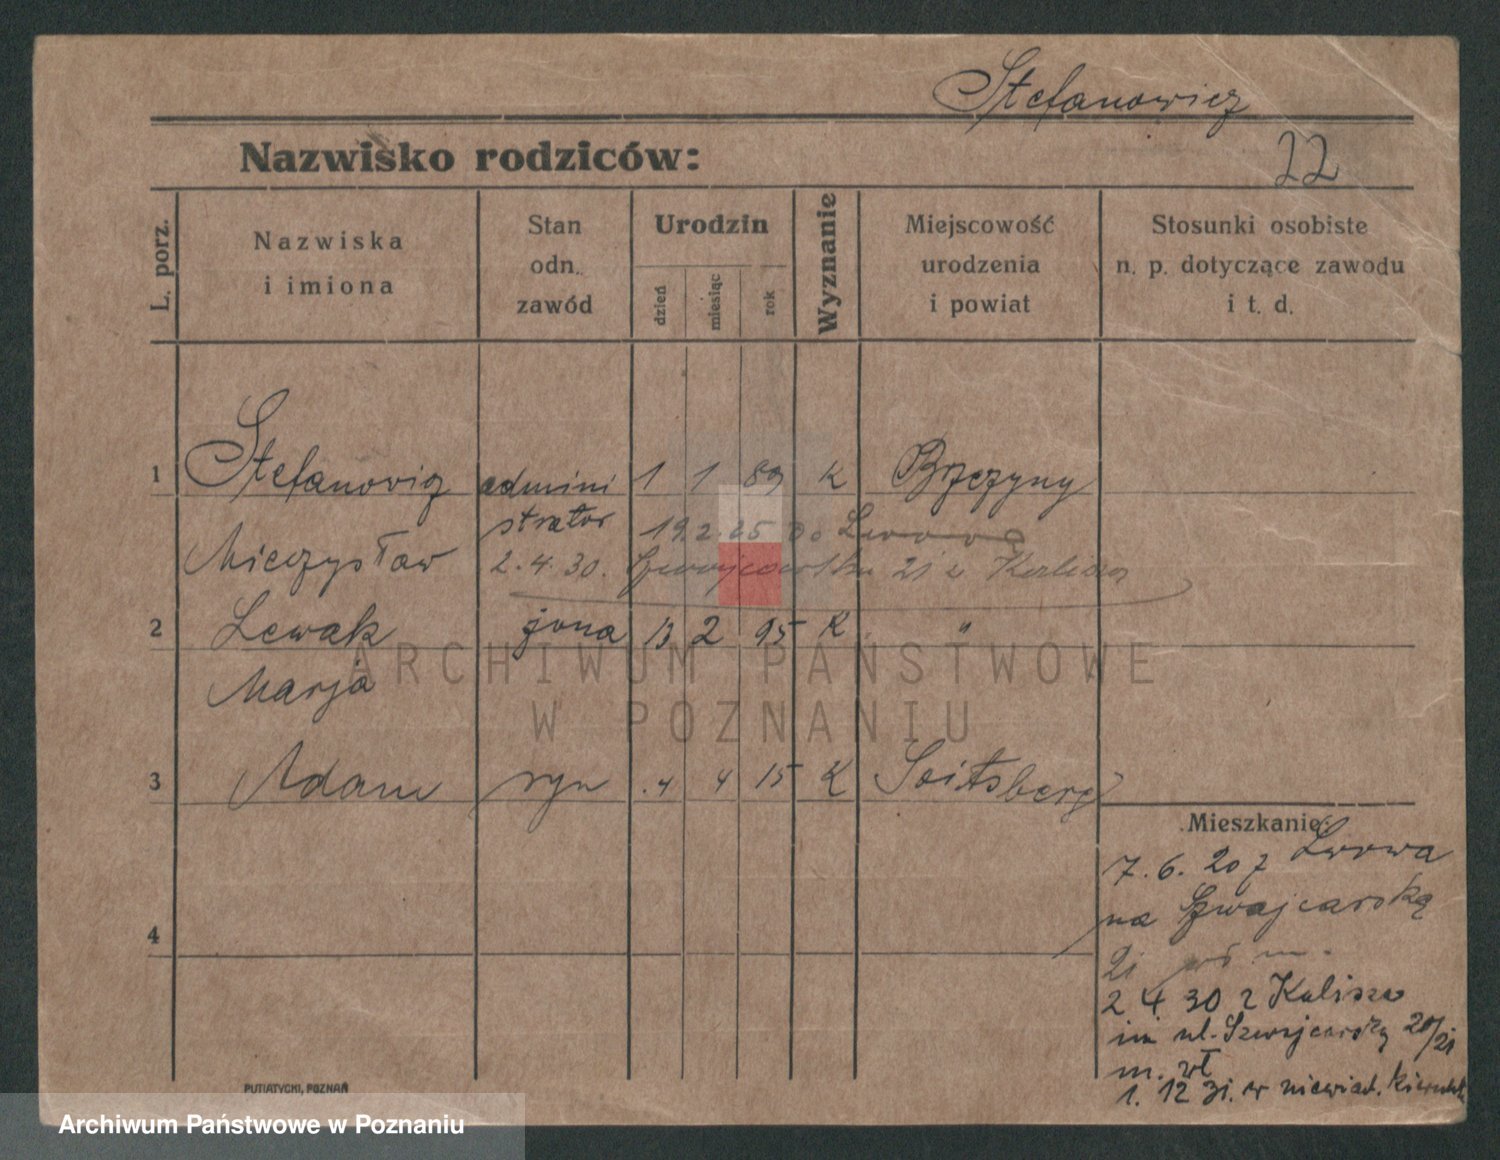 Stefanowicz
22
Nazwisko rodziców:
L. porz.
Nazwiska
i imiona
Stan
odn.
zawód
Urodzin
dzień
miesiąc
rok
Wyznanie
Miejscowość
urodzenia
i powiat
Stosunki osobiste
n. p. dotyczące zawodu
i t. d.
1 Stefanowicz admini 1 1 89 K Brzeziny
strator 19.2.25 do Lwowa
Mieczysław 2.4.30. Szwajcarska 21 z Kalisza
2 Lewak żona 13 2 95 K "
Marja
3 Adam syn 4 4 15 K
Mieszkanie:
7.6.20 z Lwowa
na Szwajcarską
21 m.
2 4 30 z Kalisza
ul. Szwajcarską 20/21
m. wł
1. 12 31. w niewiad. kierunk
4
PUTIATYCKI, POZNAŃ
ARCHIWUM PAŃSTWOWE
W POZNANIU
Archiwum Państwowe w Poznaniu